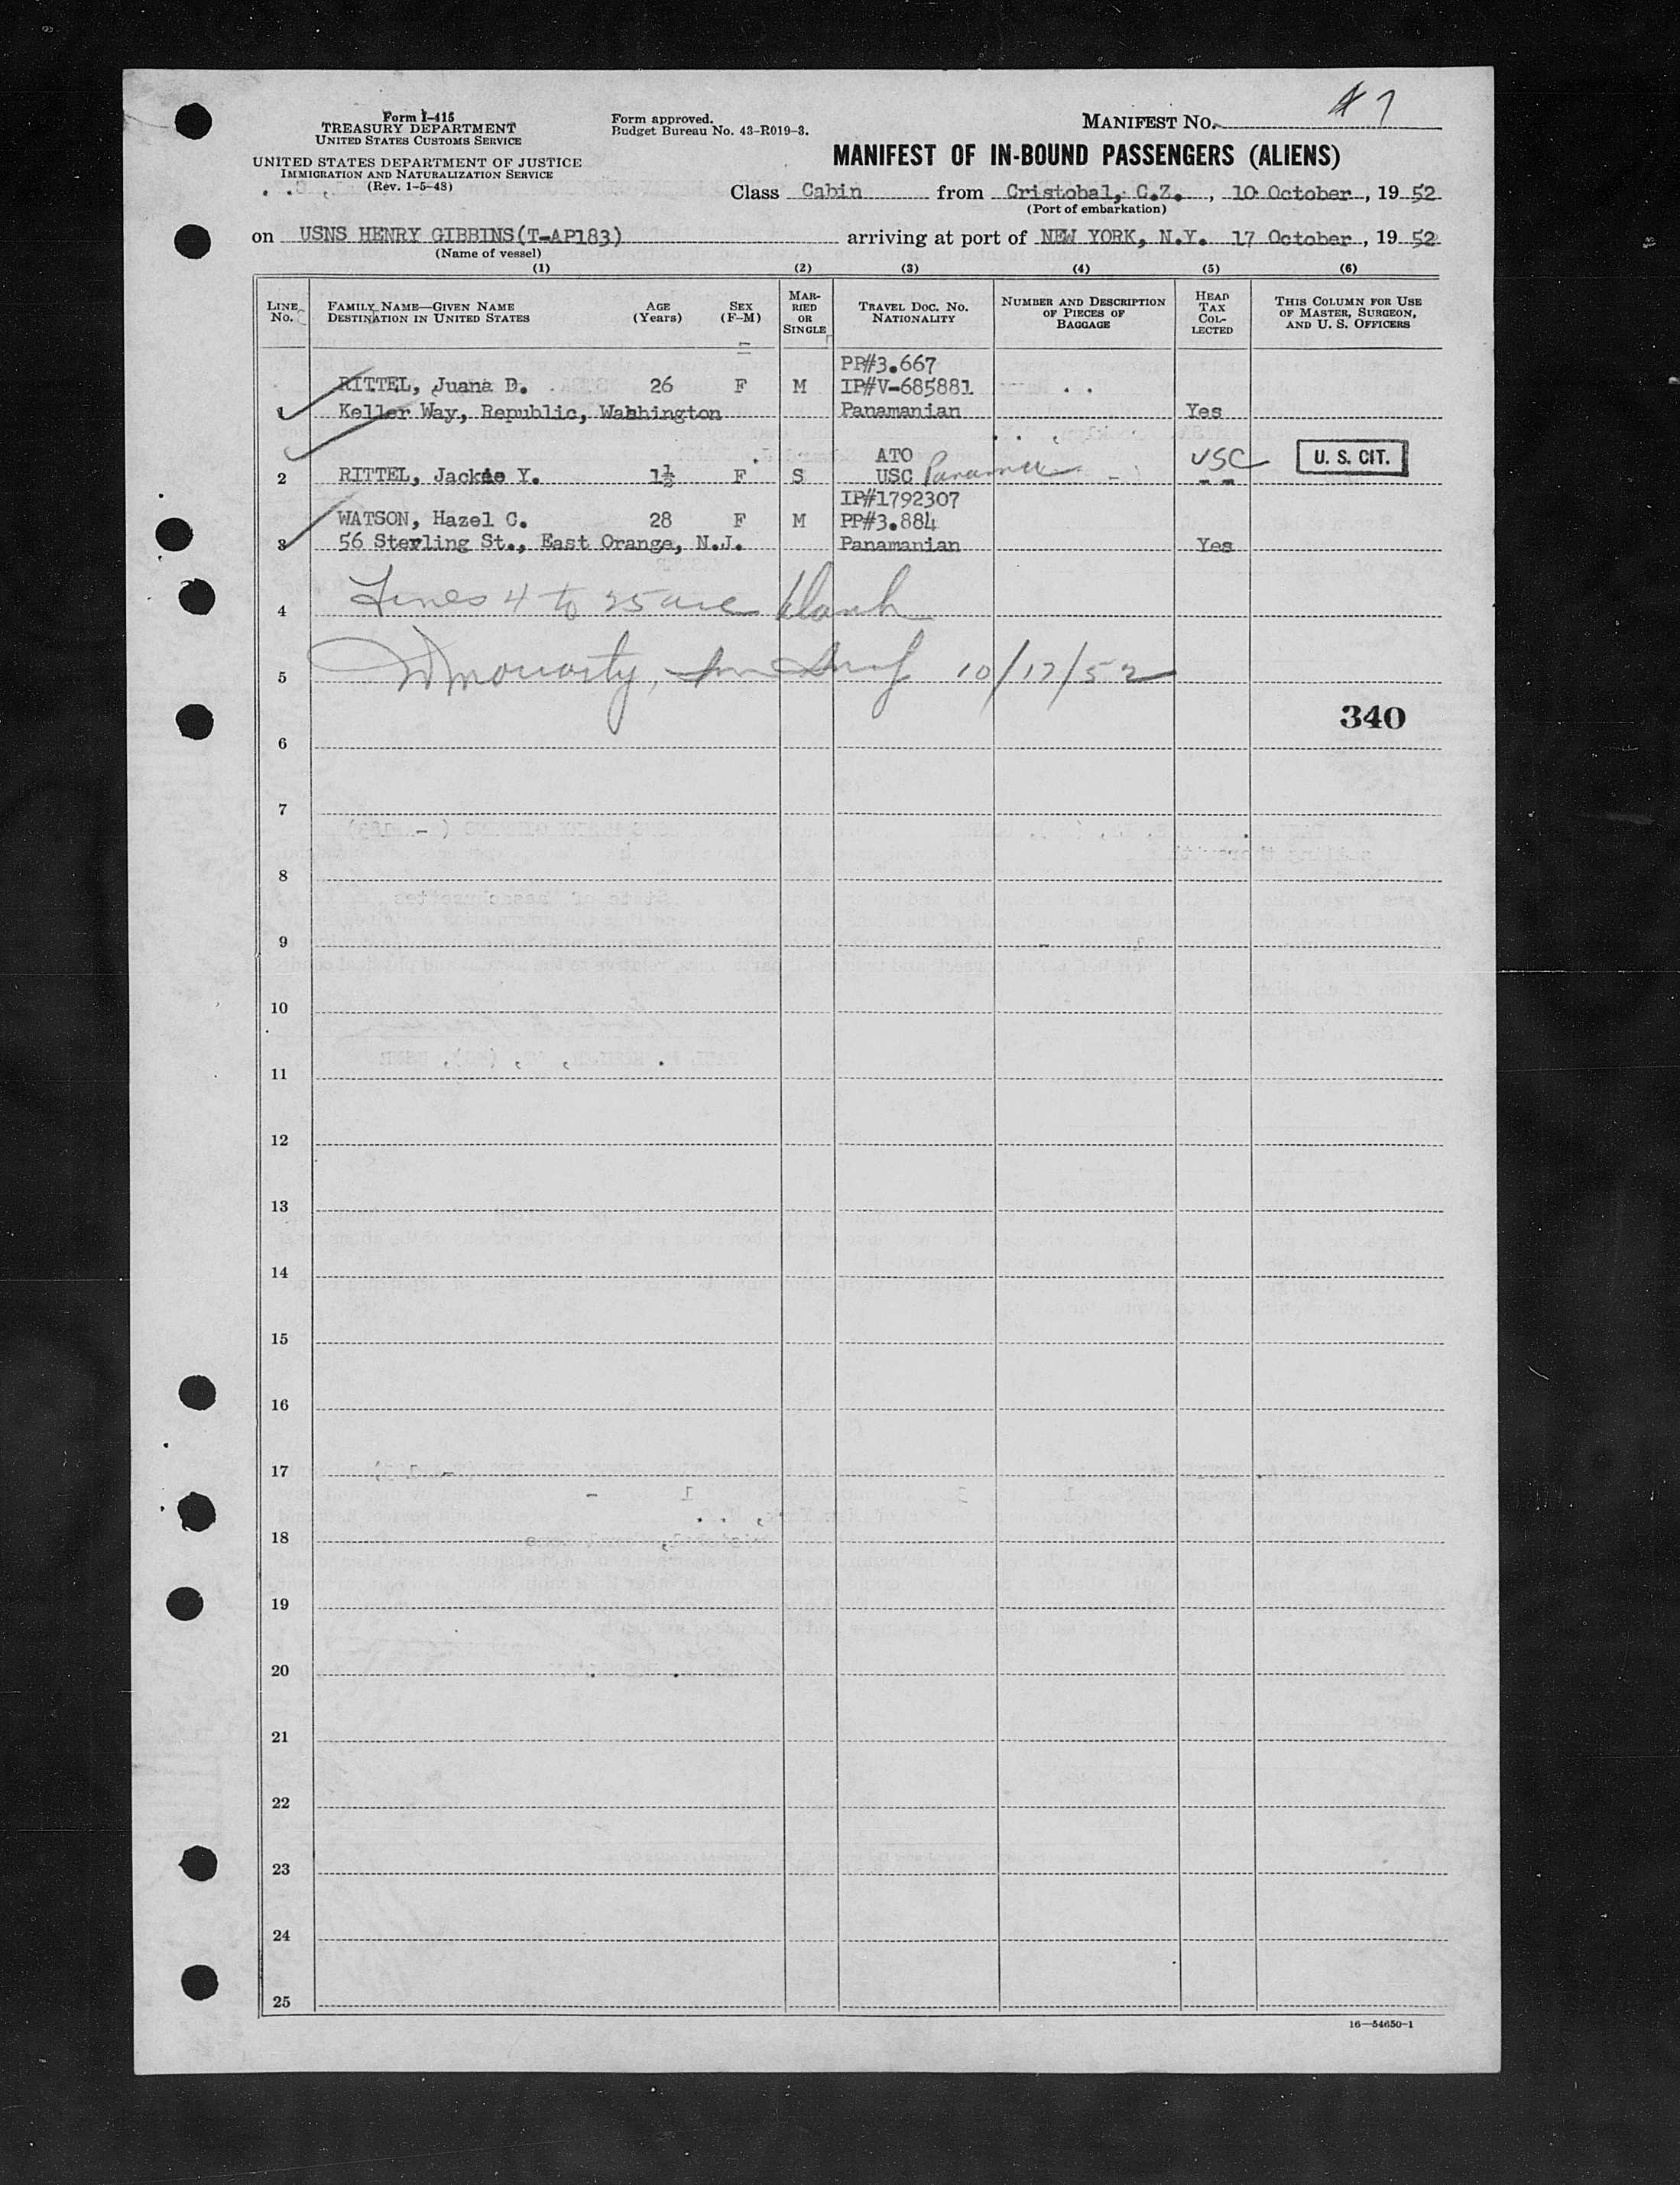 Form I-415
TREASURY DEPARTMENT
UNITED STATES CUSTOMS SERVICE
UNITED STATES DEPARTMENT OF JUSTICE
IMMIGRATION AND NATURALIZATION SERVICE
(Rev. 1-5-48)
Form approved.
Budget Bureau No. 43-R019-3.
MANIFEST NO. 7
MANIFEST OF IN-BOUND PASSENGERS (ALIENS)
Class Cabin from Cristobal, C.Z., 10 October, 1952
(Port of embarkation)
on USNS HENRY GIBBINS(T-AP183) arriving at port of NEW YORK, N.Y. 17 October, 1952
(Name of vessel)
(1) (2) (3) (4) (5) (6)
LINE No. FAMILY NAME—GIVEN NAME DESTINATION IN UNITED STATES AGE (Years) SEX (F-M) MARRIED OR SINGLE TRAVEL DOC. NO. NATIONALITY NUMBER AND DESCRIPTION OF PIECES OF BAGGAGE HEAD TAX COLLECTED THIS COLUMN FOR USE OF MASTER, SURGEON, AND U. S. OFFICERS
PP#3.667
RITTEL, Juana D. 26 F M IP#V-685881
1 Keller Way, Republic, Washington Panamanian Yes
ATO USC U. S. CIT.
2 RITTEL, Jackie Y. 1½ F S USC Panama - -
IP#1792307
WATSON, Hazel C. 28 F M PP#3.884
3 56 Sterling St., East Orange, N.J. Panamanian Yes
4 Lines 4 to 25 are blank
5 Moriarty, 10/17/52
340
6
7
8
9
10
11
12
13
14
15
16
17
18
19
20
21
22
23
24
25
16—54650-1